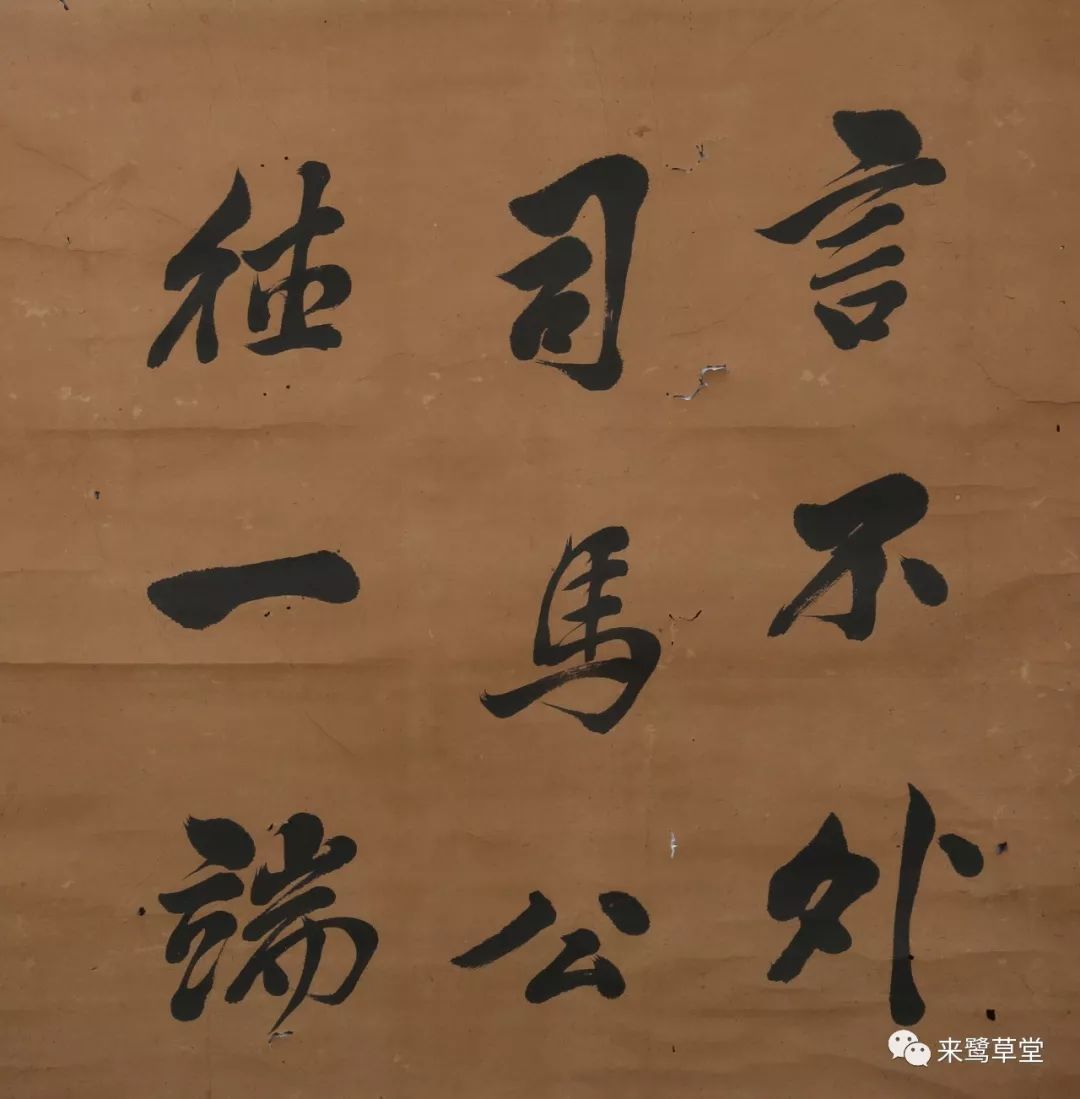 言不外
司馬公
往一端
来鹭草堂